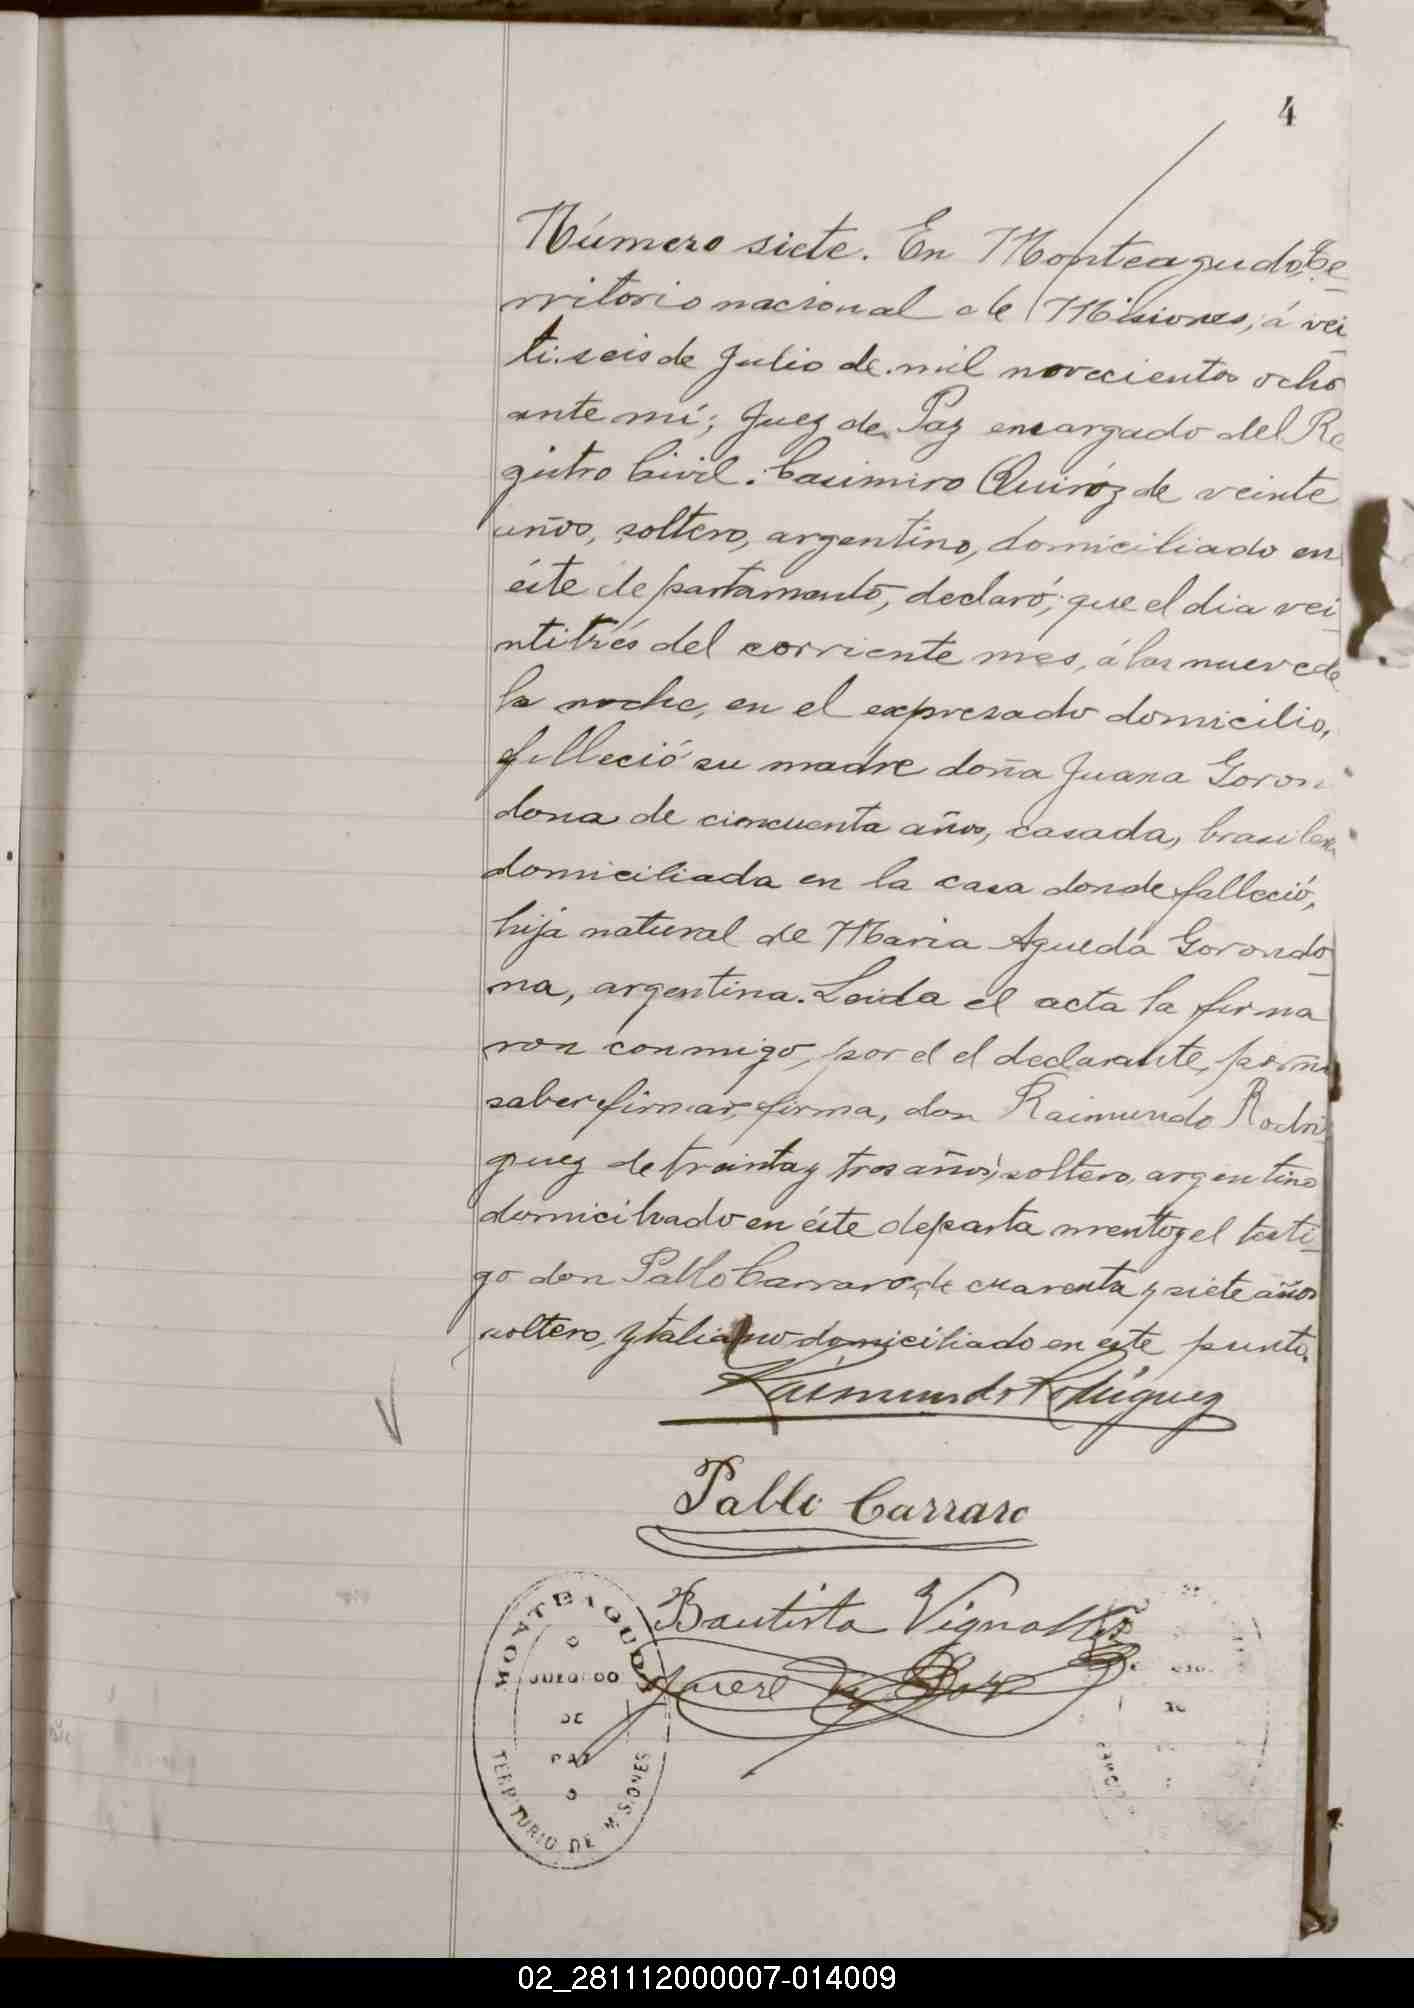 4
Número siete. En Monteagudo, Te-
rritorio nacional de Misiones, á vei
ti.seis de Julio de mil novecientos ocho
ante mí; Juez de Paz encargado del Re
gistro Civil. Casimiro Quiróz de veinte
años, soltero, argentino, domiciliado en
éste departamento, declaró; que el dia vei-
ntitrés del corriente mes, á las nueve de
la noche, en el expresado domicilio,
falleció su madre doña Juana Goron
dona de cincuenta años, casada, brasilera
domiciliada en la casa donde falleció,
hija natural de Maria Agueda Gorondo-
na, argentina. Leida el acta la firma
ron conmigo, por el el declarante, por no
saber firmar, firma, don Raimundo Rodri
guez de treinta y tres años, soltero, argentino
domiciliado en éste departamento y el testi-
go don Pablo Carraro, de cuarenta y siete años
soltero, ytaliano domiciliado en este punto.
Raimundo Rodriguez
Pablo Carraro
Bautista
Juez de Paz
MONTEAGUDO
JUZGADO
DE
PAZ
TERRITORIO DE MISIONES
02_281112000007-014009